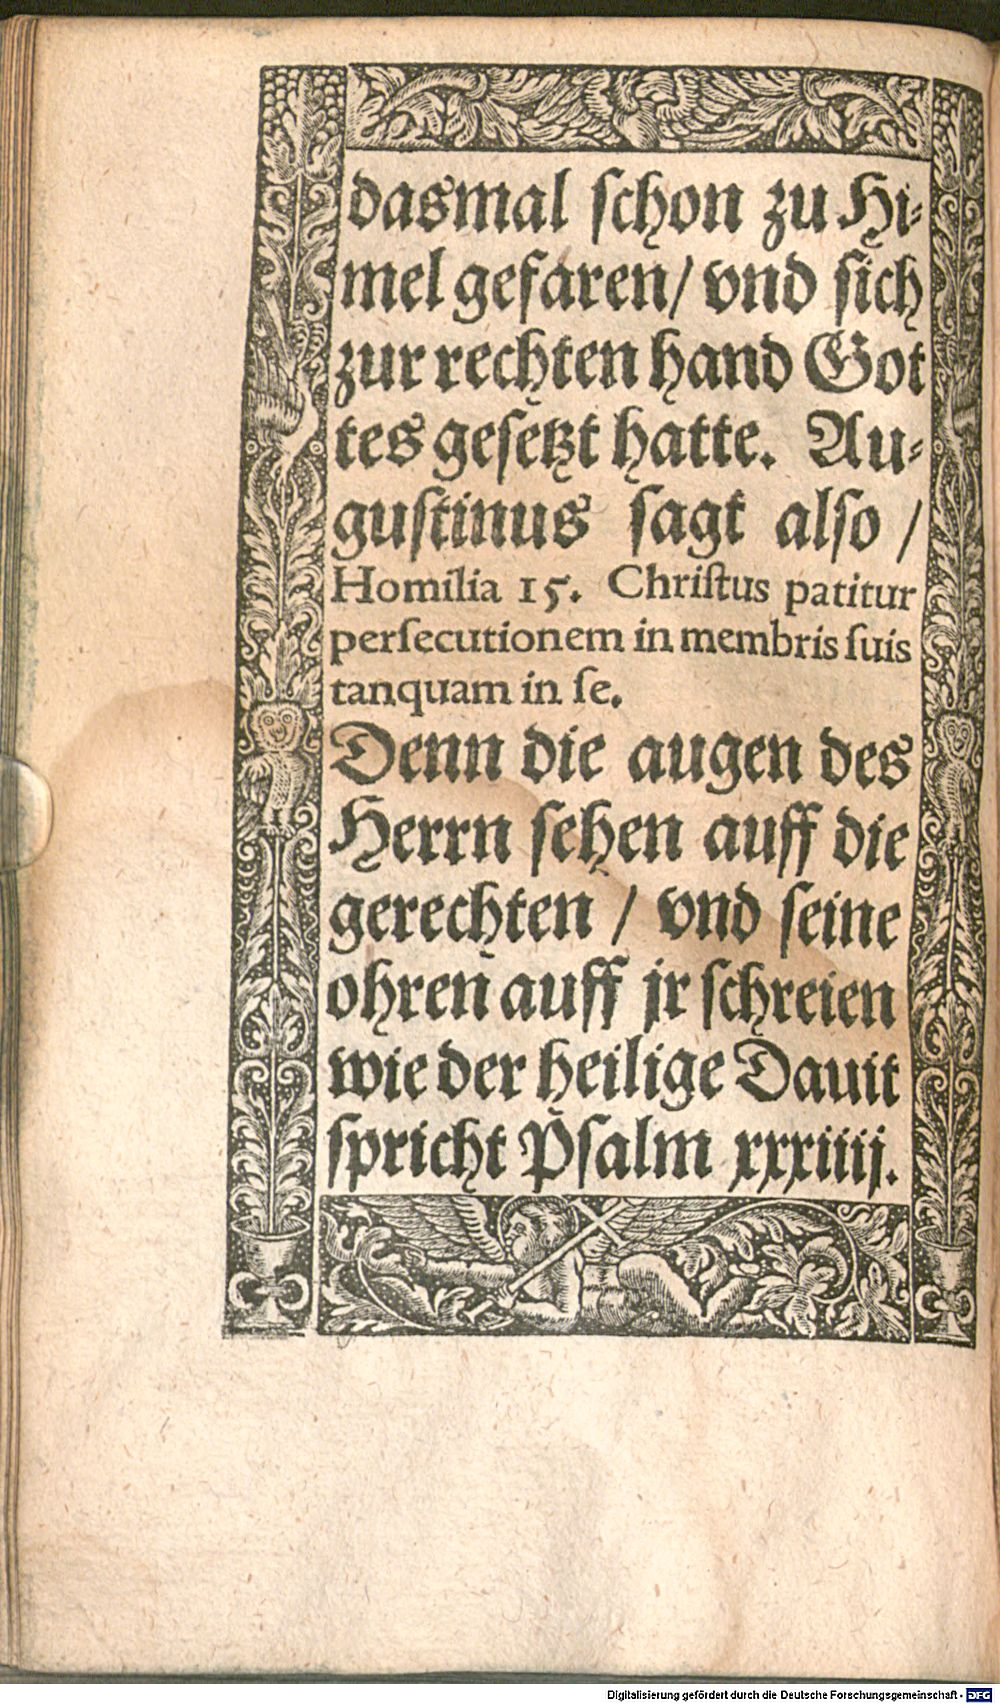 dasmal schon zu Hi-
mel gefaren / vnd sich
zur rechten hand Got
tes gesetzt hatte. Au-
gustinus sagt also /
Homilia 15. Christus patitur
persecutionem in membris suis
tanquam in se.
Denn die augen des
Herrn sehen auff die
gerechten / vnd seine
ohren auff jr schreien
wie der heilige Dauit
spricht Psalm xxxiiij.
Digitalisierung gefördert durch die Deutsche Forschungsgemeinschaft - DFG